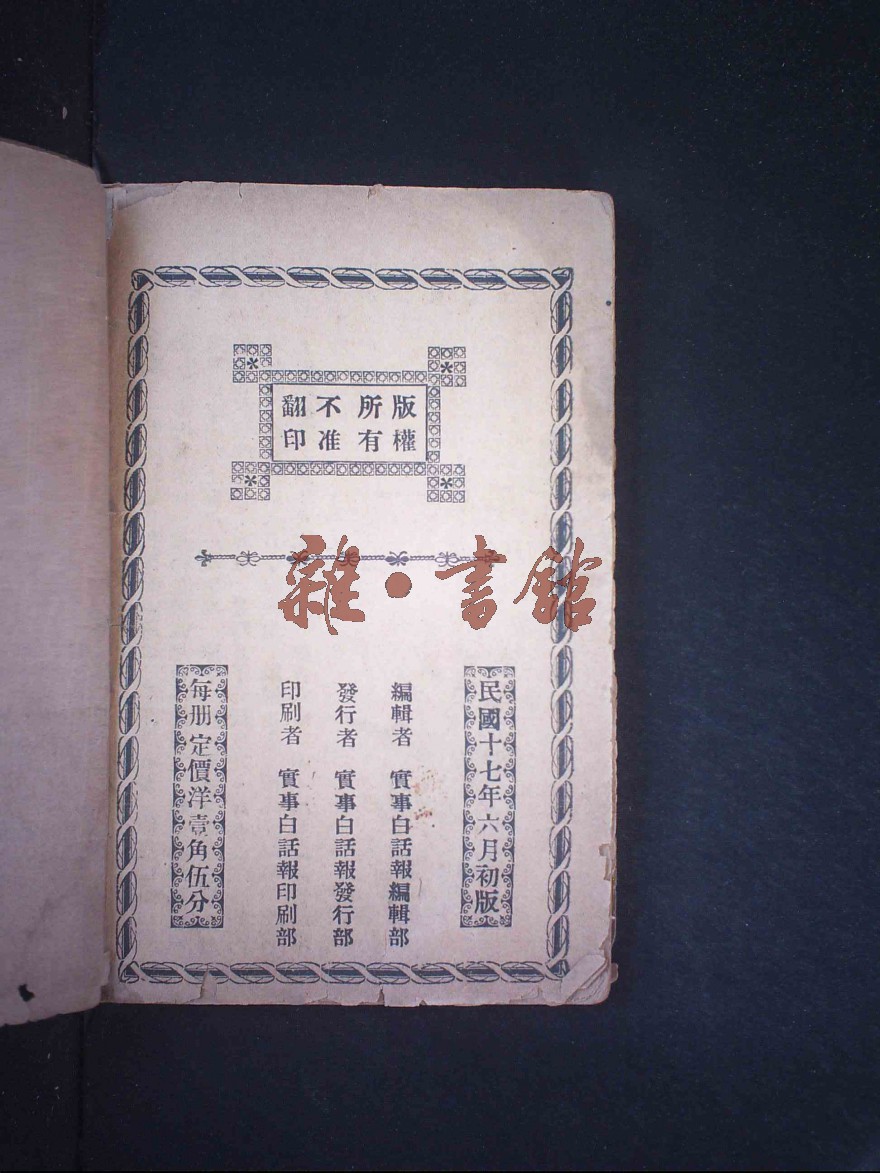 版權
所有
不准
翻印
雜·書館
民國十七年六月初版
編輯者 實事白話報編輯部
發行者 實事白話報發行部
印刷者 實事白話報印刷部
每册定價洋壹角伍分